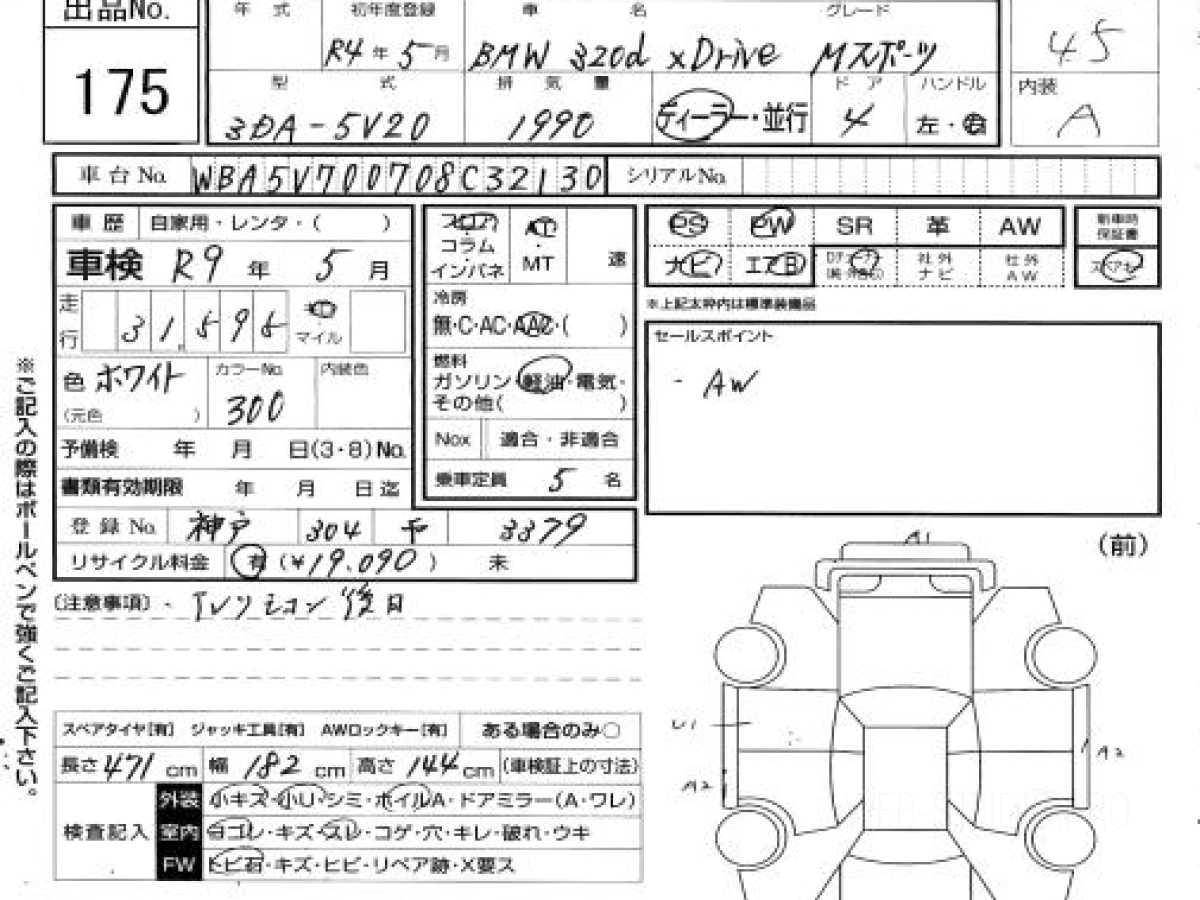 出品No.
175
年 式 初年度登録 車 名 グレード
R4年5月 BMW 320d xDrive Mスポーツ
4.5
型 式 排 気 量 ド ア ハンドル 内装
3DA-5V20 1990 ディーラー・並行 4 左・右 A
車台No. WBA5V700708C32130 シリアルNo.
車 歴 自家用・レンタ・( )
車検 R9年 5月
走行 31,595 マイル
色 ホワイト カラーNo. 300 内装色
(元色 )
予備検 年 月 日(3・8)No.
書類有効期限 年 月 日迄
登録No. 神戸 304 3379
リサイクル料金 有(¥19.090) 未
フロア コラム・インパネ
AT・MT 速
冷房
無・C・AC・AAC・( )
燃料
ガソリン・軽油・電気・
その他( )
Nox 適合・非適合
乗車定員 5 名
PS PW SR 革 AW 新車時保証書
ナビ エアB 社外ナビ 社外AW スペアキー
※上記太枠内は標準装備品
セールスポイント
- AW
※ご記入の際はボールペンで強くご記入下さい。
〔注意事項〕
後日
(前)
A1
U1
A2
A2
スペアタイヤ[有] ジャッキ工具[有] AWロックキー[有] ある場合のみ○
長さ471cm 幅182cm 高さ144cm (車検証上の寸法)
検査記入
外装 小キズ・小U・シミ・ホイルA・ドアミラー(A・ワレ)
室内 ヨゴレ・キズ・スレ・コゲ・穴・キレ・破れ・ウキ
FW トビ石・キズ・ヒビ・リペア跡・X要ス